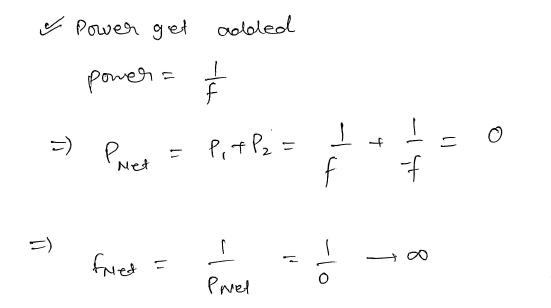 ✓ Power get added
power = 1/f
=) P_Net = P₁ + P₂ = 1/f + 1/-f = 0
=) f_Net = 1/P_Net = 1/0 → ∞